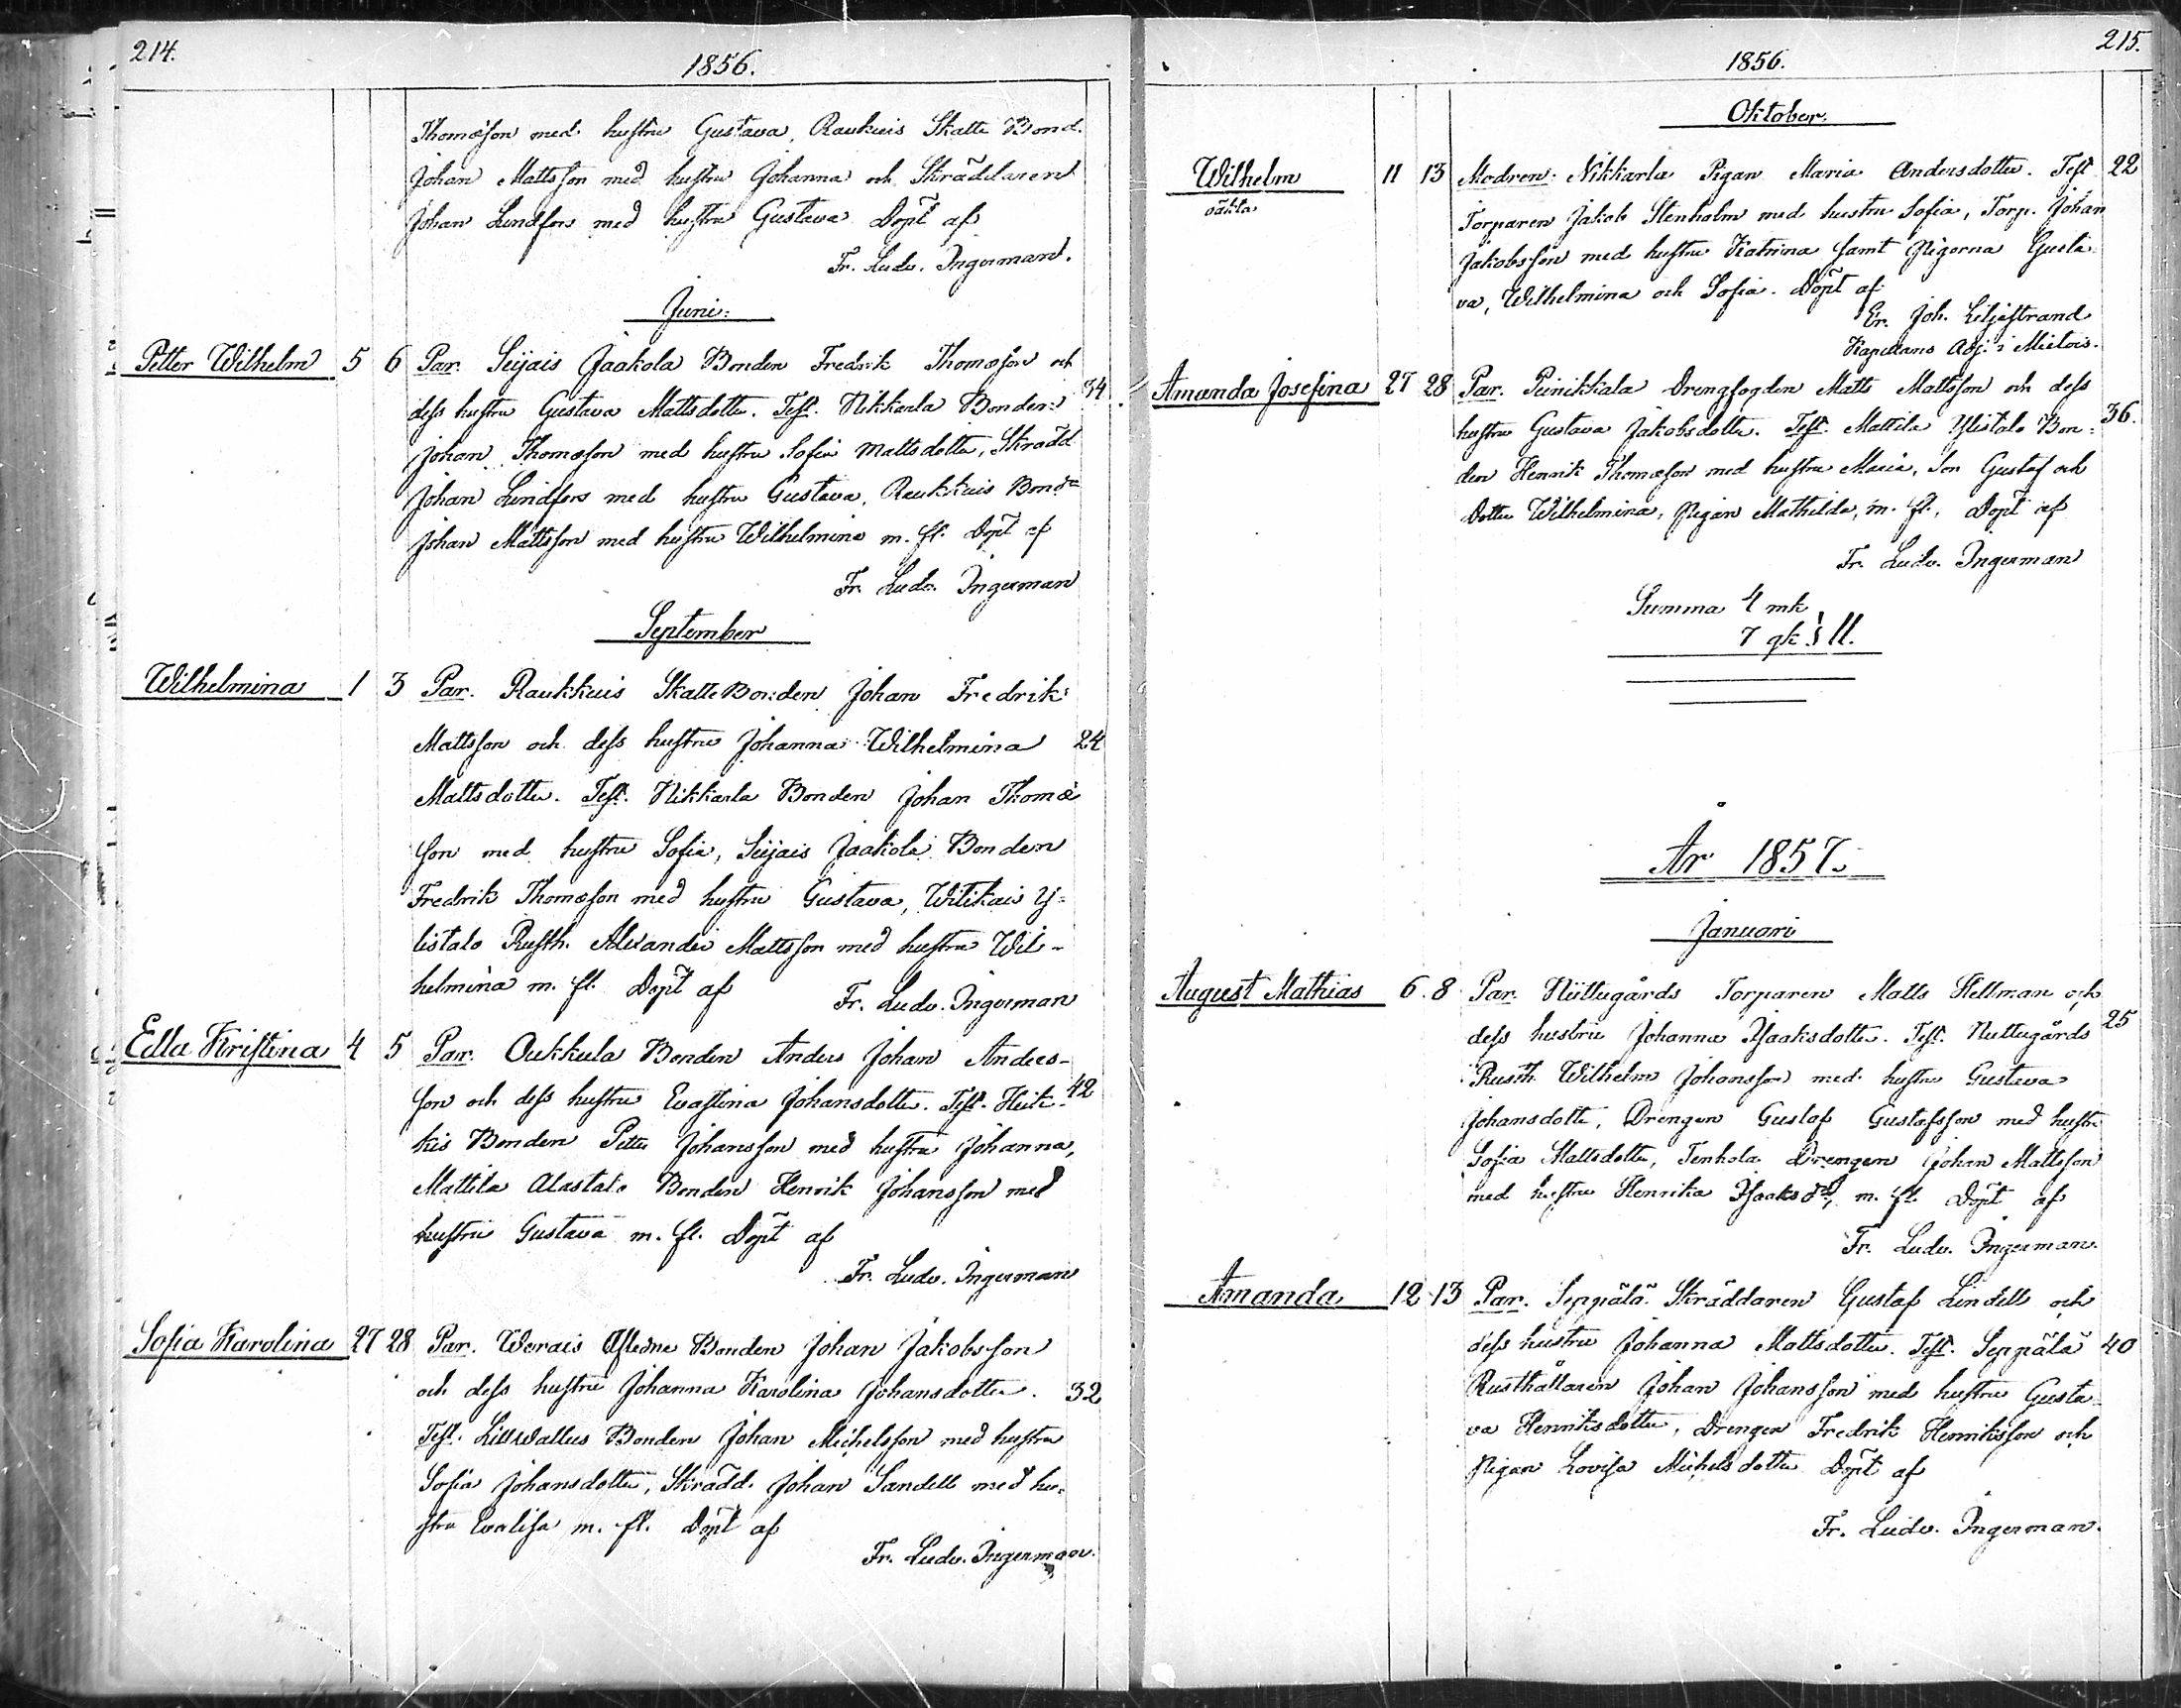 214.
1856.
Thomæson med hustru Gustava, Raukuis Skatte Bond.
Johan Mattsson med hustru Johanna och Skräddaren
Johan Lindfors med hustru Gustava Döpt af
Fr. Ludv. Ingerman.
Juni.
Petter Wilhelm 5 6 Par. Seijais Jaakola Bonden Fredrik Thomæson och
dess hustru Gustava Mattsdotter. Test. Nikkarla Bonden 34
Johan Thomæson med hustru Sofia Mattsdotter, Skrädd
Johan Lindfors med hustru Gustava, Raukkuis Bond.
Johan Mattsson med hustru Wilhelmina m. fl. Döpt af
Fr. Ludv. Ingerman
September
Wilhelmina 1 3 Par. Raukkuis Skatte Bonden Johan Fredrik
Mattsson och dess hustru Johanna Wilhelmina 24
Mattsdotter. Test. Nikkarla Bonden Johan Thomæ
son med hustru Sofia, Seijais Jaakola Bonden
Fredrik Thomæson med hustru Gustava, Witikais Y=
listalo Rusth. Alexander Mattsson med hustru Wil-
helmina m. fl. Döpt af Fr. Ludv. Ingerman
Edla Kristina 4 5 Par. Oukkula Bonden Anders Johan Anders-
son och dess hustru Evastina Johansdotter. Test. Heik- 42
kis Bonden Petter Johansson med hustru Johanna,
Mattila Alastalo Bonden Henrik Johansson med
hustru Gustava m. fl. Döpt af
Fr. Ludv. Ingerman
Sofia Karolina 27 28 Par. Werais Afledne Bonden Johan Jakobsson
och dess hustru Johanna Karolina Johansdotter. 32
Test. Lillwallus Bonden Johan Michelsson med hustru
Sofia Johansdotter, Skrädd. Johan Sandell med hu=
stru Evalisa m. fl. Döpt af
Fr. Ludv. Ingerman.
215.
1856.
Oktober.
Wilhelm 11 13 Modren: Nikkarla Pigan Maria Andersdotter. Test 22
oäkta
Torparen Jakob Stenholm med hustru Sofia, Torp. Johan
Jakobsson med hustru Katrina samt Pigorna Gusta-
va, Wilhelmina och Sofia. Döpt af
Er. Joh. Liljestrand
Kapellans Adj. i Mietois.
Amanda Josefina 27 28 Par. Pinikkala Drengfogden Matts Mattsson och dess
hustru Gustava Jakobsdotter. Test. Mattila Ylistalo Bon= 36.
den Henrik Thomæson med hustru Maria, Son Gustaf och
Dotter Wilhelmina, Pigan Mathilda, m. fl. Döpt af
Fr. Ludv. Ingerman
Summa 4 mk
7 qk } 11.
År 1857.
Januari
August Mathias 6. 8 Par. Nuttugårds Torparen Matts Hellman och
dess hustru Johanna Isaaksdotter. Test. Nuttugårds 25
Rusth. Wilhelm Johansson med hustru Gustava
Johansdotter, Drengen Gustaf Gustafsson med hustru
Sofia Mattsdotter, Tenhola Drengen Johan Mattsson
med hustru Henrika Isaaksd:r, m. fl. Döpt af
Fr. Ludv. Ingerman.
Amanda 12 13 Par. Seppälä Skräddaren Gustaf Lindell och
dess hustru Johanna Mattsdotter. Test. Seppälä 40
Rusthållaren Johan Johansson med hustru Gusta-
va Henriksdotter, Drengen Fredrik Henriksson och
Pigan Lovisa Michelsdotter Döpt af
Fr. Ludv. Ingerman.